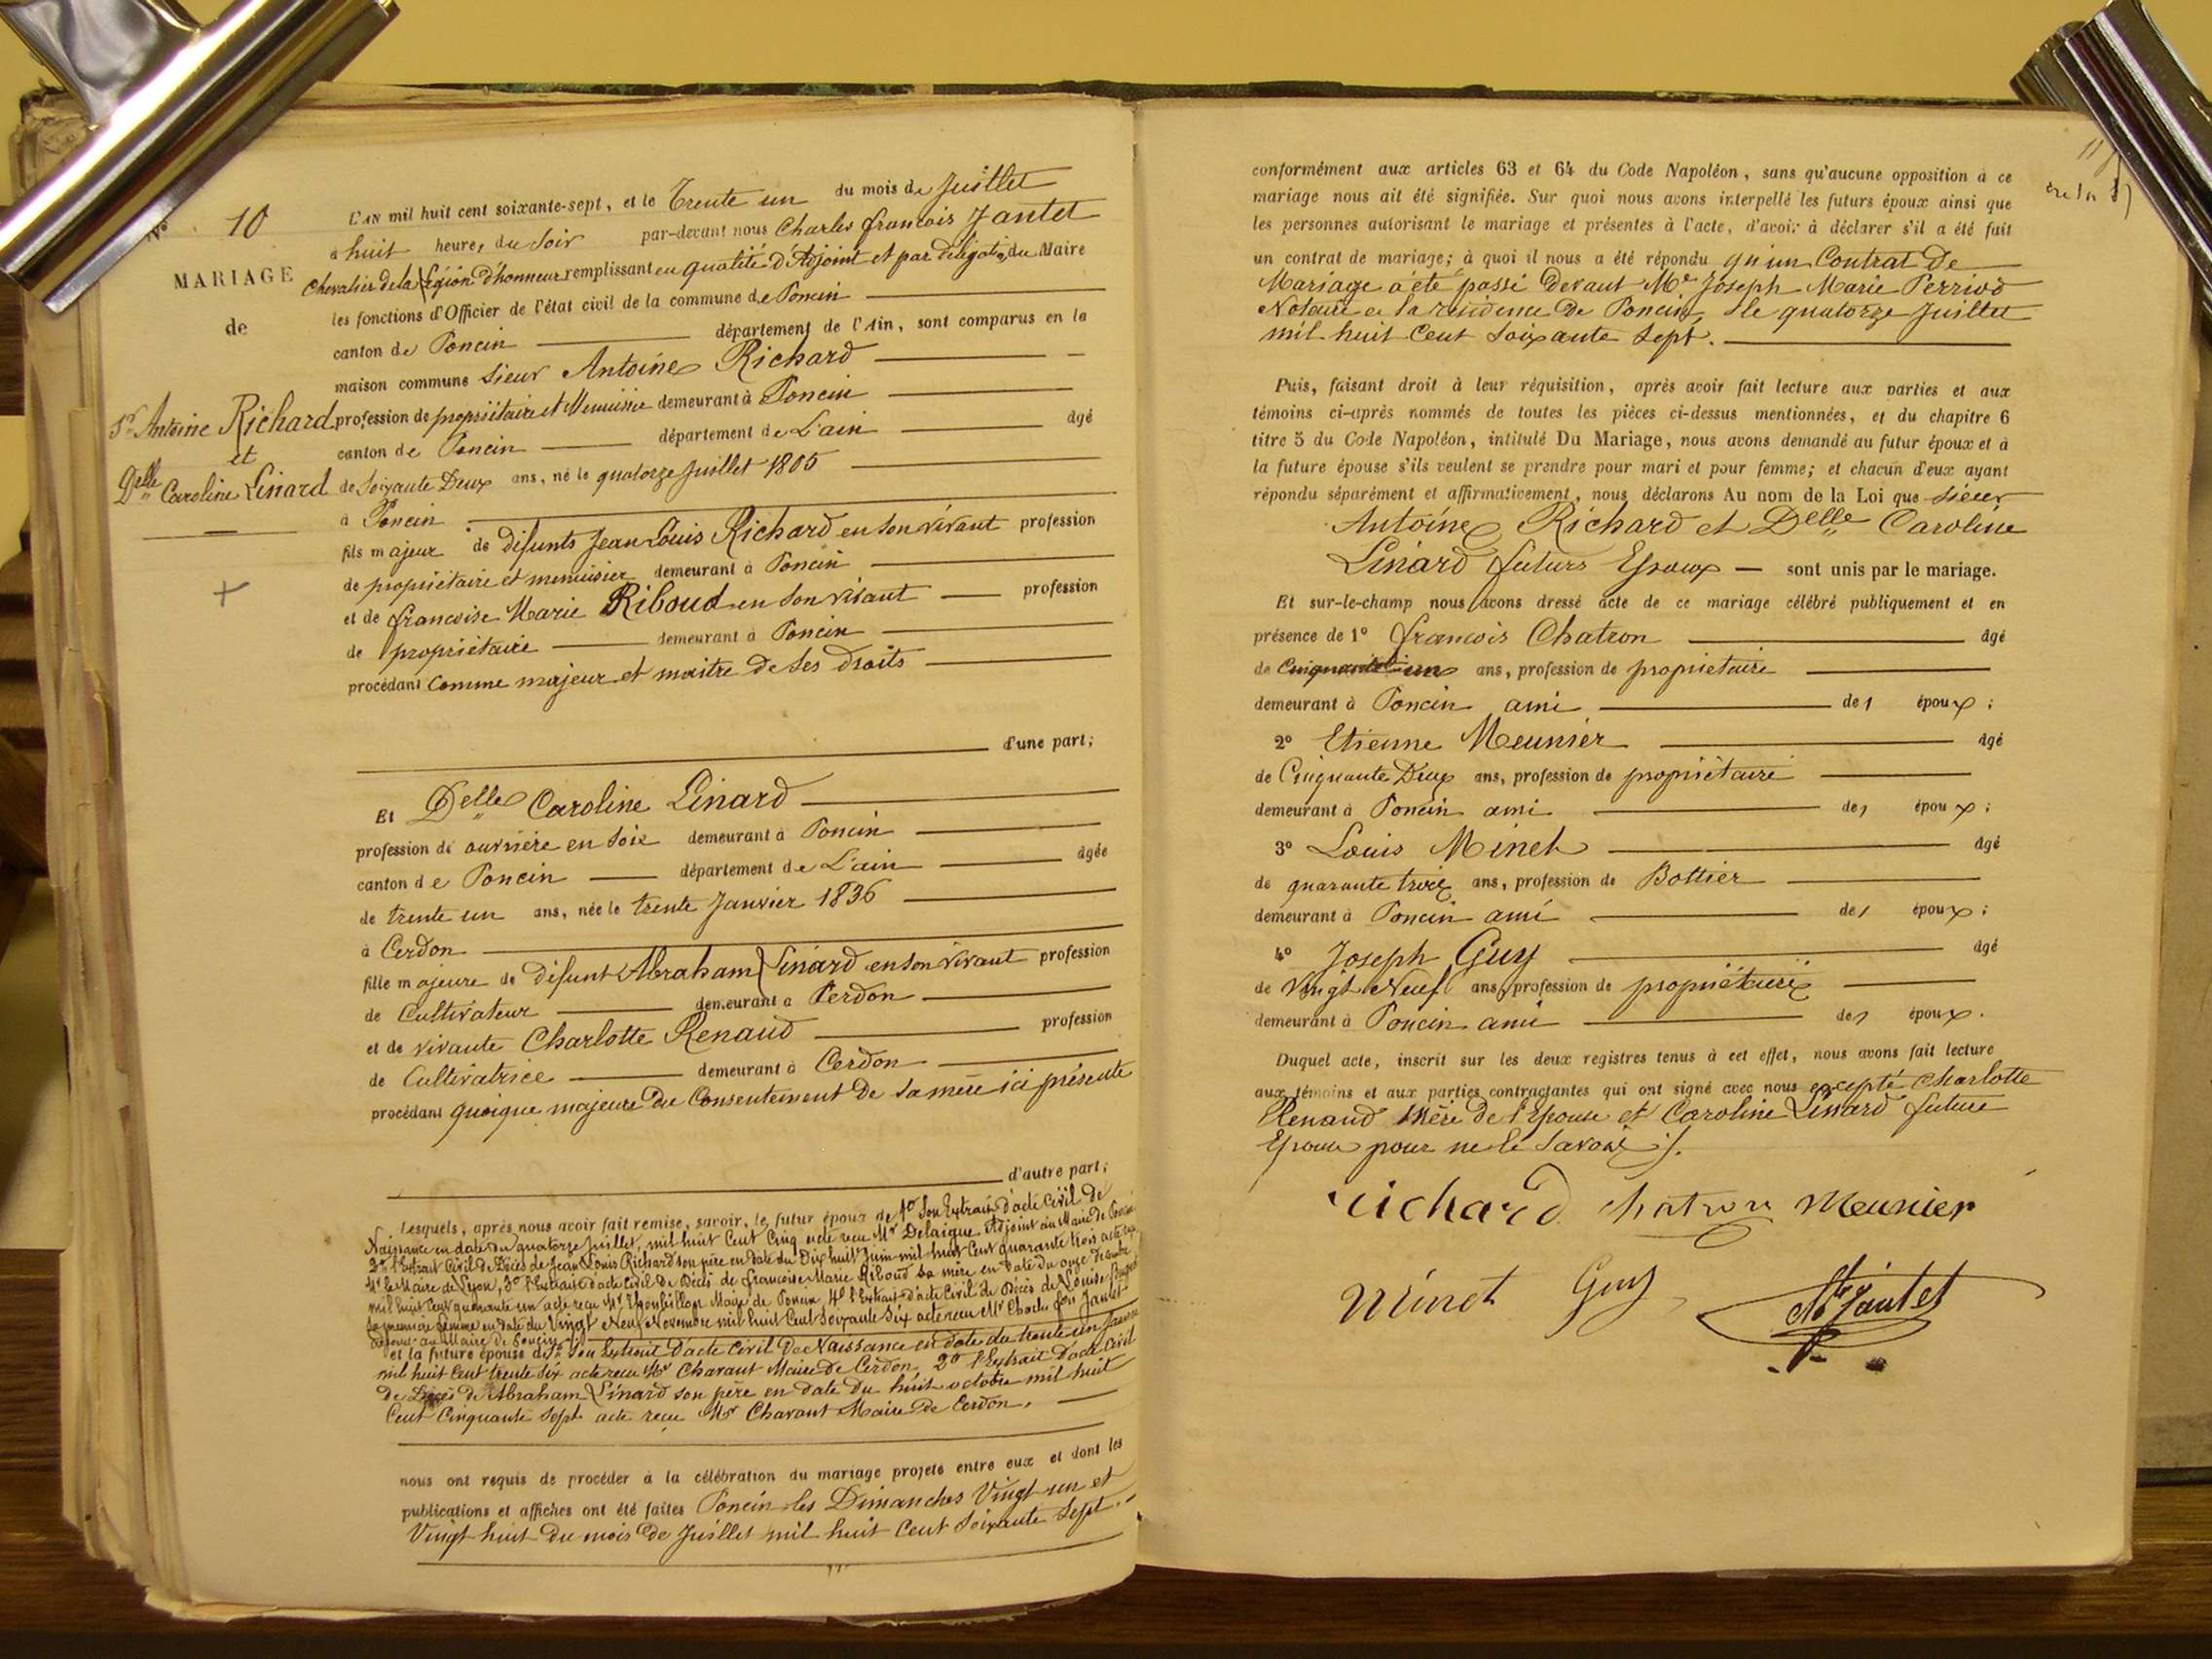 N° 10
MARIAGE
de
Sr Antoine Richard
et
Delle Caroline Linard
L'AN mil huit cent soixante-sept, et le Trente un du mois de Juillet
à huit heure, du Soir par-devant nous Charles francois Jantet
Chevalier de la Légion d'honneur remplissant en qualité d'Adjoint et par délégation du Maire
les fonctions d'Officier de l'état civil de la commune de Poncin
canton de Poncin département de l'Ain, sont comparus en la
maison commune Sieur Antoine Richard
profession de propriétaire et Menuisier demeurant à Poncin
canton de Poncin département de L'ain âgé
de Soixante Deux ans, né le quatorze Juillet 1805
à Poncin
fils majeur de défunts Jean Louis Richard en son vivant profession
de propriétaire et menuisier demeurant à Poncin
et de francoise Marie Riboud en Son vivant profession
de propriétaire demeurant à Poncin
procédant comme majeur et maitre de ses droits
d'une part;
Et Delle Caroline Linard
profession de ouvrière en Soie demeurant à Poncin
canton de Poncin département de L'ain âgée
de trente un ans, née le trente Janvier 1836
à Cerdon
fille majeure de défunt Abraham Linard en son vivant profession
de Cultivateur demeurant à Cerdon
et de vivante Charlotte Renaud profession
de Cultivatrice demeurant à Cerdon
procédant quoique majeure du Consentement de Sa mère ici présente
d'autre part;
Lesquels, après nous avoir fait remise, savoir, le futur époux de 1° Son Extrait d'acte Civil de
Naissance en date du quatorze Juillet, mil huit Cent Cinq acte recu Mr Delaigue Adjoint au Maire de Poncin
2° l'Extrait Civil de Décès de Jean Louis Richard son père en date du Dix huit Juin mil huit Cent quarante trois acte reçu
Mr le Maire de Lyon, 3° l'Extrait d'acte Civil de Décès de francoise Marie Riboud Sa mère en date du onze
mil huit Cent quarante un acte recu Mr Maire de Poncin 4° l'Extrait d'acte Civil de Décès de Louise
Sa première femme en date du Vingt Neuf Novembre mil huit Cent Soixante Six acte recu Mr Charles fois Jantet
adjoint au Maire de Poncin
et la future épouse de 1° Son Extrait d'acte Civil de Naissance en date du trente un Janvier
mil huit Cent trente Six acte recu Mr Charaut Maire de Cerdon, 2° l'Extrait d'acte Civil
de Décès de Abraham Linard son père en date du huit octobre mil huit
Cent Cinquante Sept acte recu Mr Charaut Maire de Cerdon.
nous ont requis de procéder à la célébration du mariage projeté entre eux et dont les
publications et affiches ont été faites Poncin les Dimanches Vingt un et
Vingt huit du mois de Juillet mil huit Cent Soixante Sept
conformément aux articles 63 et 64 du Code Napoléon, sans qu'aucune opposition à ce
mariage nous ait été signifiée. Sur quoi nous avons interpellé les futurs époux ainsi que
les personnes autorisant le mariage et présentes à l'acte, d'avoir à déclarer s'il a été fait
un contrat de mariage; à quoi il nous a été répondu qu'un Contrat de
Mariage a été passé devant Me Joseph Marie Perriod
Notaire a la résidence de Poncin, le quatorze Juillet
mil huit Cent Soixante Sept.
Puis, faisant droit à leur réquisition, après avoir fait lecture aux parties et aux
témoins ci-après nommés de toutes les pièces ci-dessus mentionnées, et du chapitre 6
titre 5 du Code Napoléon, intitulé Du Mariage, nous avons demandé au futur époux et à
la future épouse s'ils veulent se prendre pour mari et pour femme; et chacun d'eux ayant
répondu séparément et affirmativement, nous déclarons Au nom de la Loi que Sieur
Antoine Richard et Delle Caroline
Linard futurs Epoux sont unis par le mariage.
Et sur-le-champ nous avons dressé acte de ce mariage célébré publiquement et en
présence de 1° francois Chatron âgé
de Cinquante un ans, profession de propriétaire
demeurant à Poncin ami de l époux;
2° Etienne Meunier âgé
de Cinquante Deux ans, profession de propriétaire
demeurant à Poncin ami de l époux;
3° Louis Minet âgé
de quarante trois ans, profession de Bottier
demeurant à Poncin ami de l époux;
4° Joseph Guy âgé
de Vingt Neuf ans, profession de propriétaire
demeurant à Poncin ami de l époux.
Duquel acte, inscrit sur les deux registres tenus à cet effet, nous avons fait lecture
aux témoins et aux parties contractantes qui ont signé avec nous excepté Charlotte
Renaud Mère de l'Epouse et Caroline Linard future
Epouse pour ne le Savoir
Richard Chatron Meunier
Minet Guy Jantet